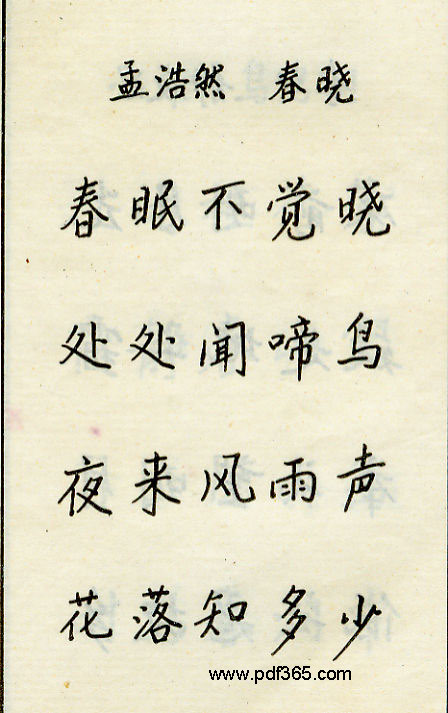 孟浩然 春晓
春眠不觉晓
处处闻啼鸟
夜来风雨声
花落知多少
www.pdf365.com